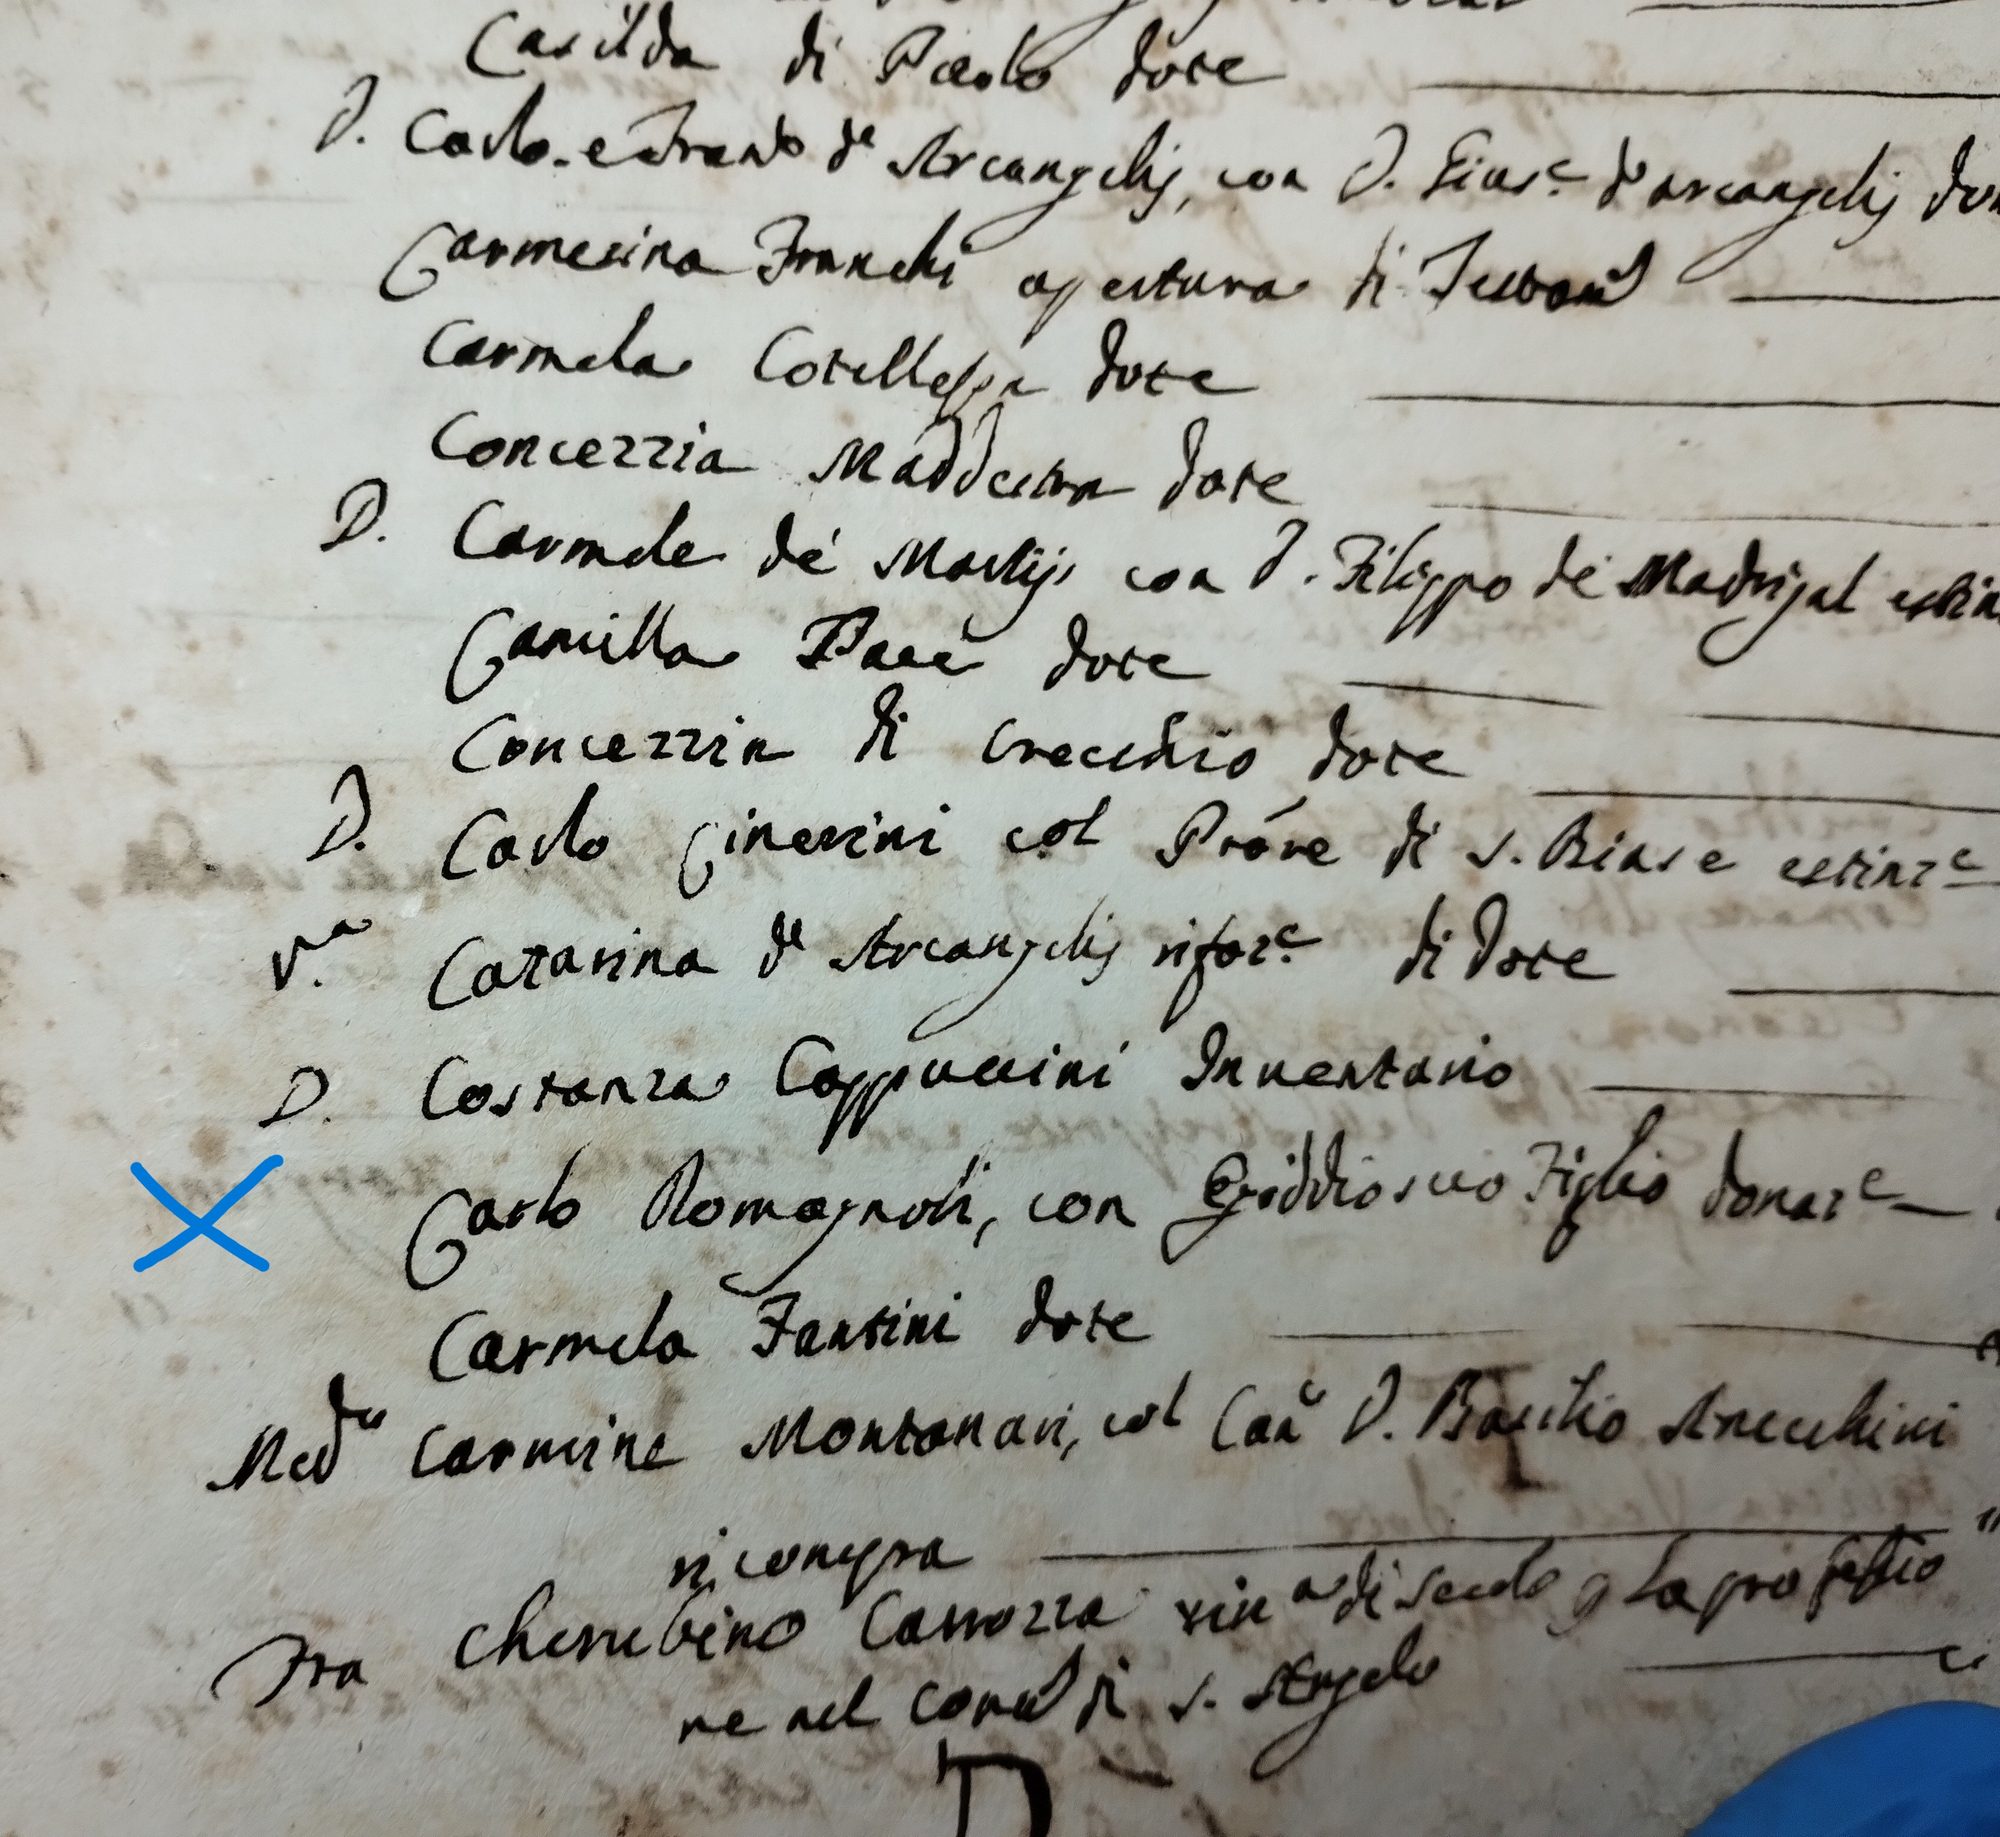 Casilda di Paolo dote
D. Carlo e Franco de Arcangelis, con D. Gius.e de Arcangelis
Carmesina Franchi apertura di Testam
Carmela Cotellessa dote
Concezzia Madde dote
D. Carmele de Marlijs con D. Filippo de Madrigal
Camilla Pace dote
Concezzia di Crecchio dote
D. Carlo Ginesini col di S. Biase estinz.e
V.a Catarina de Arcangelis rifaz.e di dote
D. Costanza Cappuccini Inventario
Carlo Romagnoli, con Egiddio suo Figlio donaz.e
Carmela Fantini dote
Carmine Montanari, col Can.e D. Basilio Arecchini
ricompra
Fra Cherubino Carrozza rin.a di secolo p la professio
ne nel Conv di S. Angelo
D